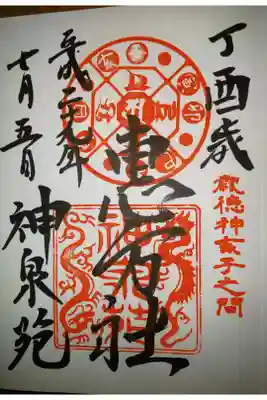 丁酉歳
歳徳神亥子之間
恵方社
平成二十九年
七月五日
神泉苑